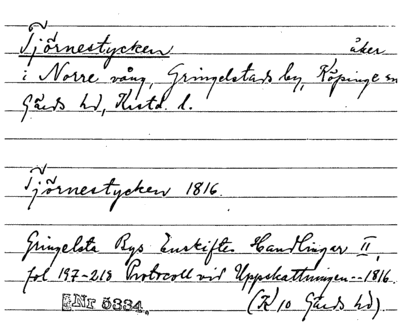 Tjörnestycken åker
i Norre vång, Gringelstads by, Köpinge sn
Gärds hd, Krstd. l.
Tjörnestycken 1816.
Gringelsta Bys Enskiftes Handlingar II,
fol 197-218 Protocoll vid Uppskattningen--1816.
Nr 5334. (K 10 Gärds hd)